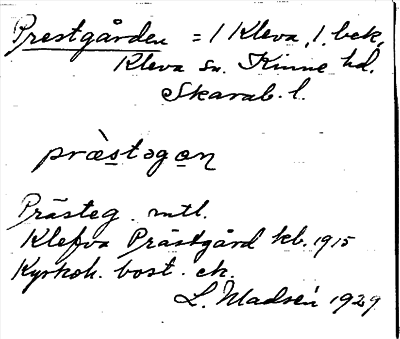 Prestgården = 1 Kleva, 1. bek,
Kleva sn. Kinne hd.
Skarab. l.
præ̀stəgɑn
Prästeg. mtl.
Klefva Prästgård kb. 1915
Kyrkoh. bost. ek.
L. Madsén 1929